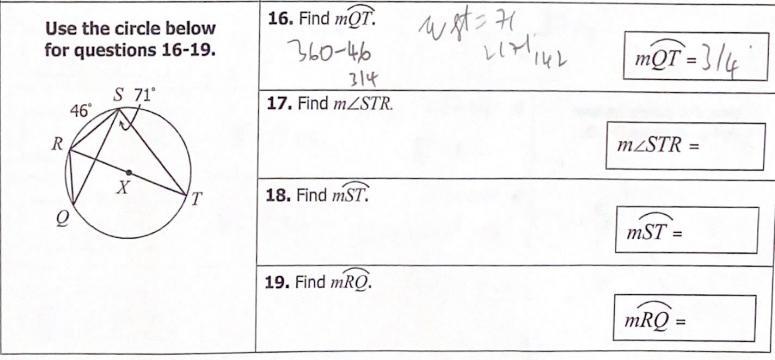 Use the circle below
for questions 16-19.
S 71°
46°
R
X
T
Q
16. Find mQT.
360-46
314
= 71
2(71)
142
mQT = 314
17. Find m∠STR.
m∠STR =
18. Find mST.
mST =
19. Find mRQ.
mRQ =